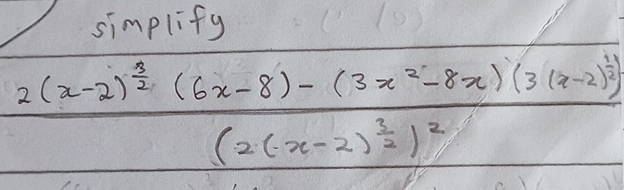 simplify
2(x-2)^{3/2} (6x-8) - (3x²-8x)(3(x-2)^{1/2})
(2(x-2)^{3/2})²